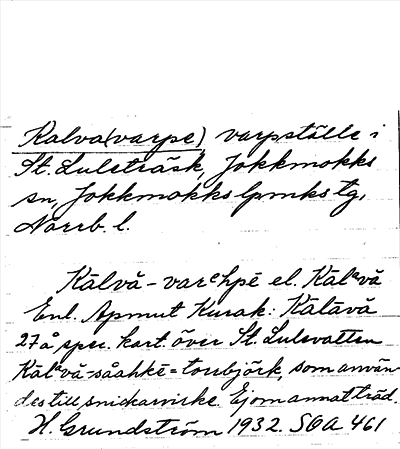 Kalva(varpe) varpställe i
St. Luleträsk, Jokkmokks
sn, Jokkmokks lpmks tg,
Norrb. l.
Kālvå - varᵉhpē el. Kālᵃvå
Enl. Apmut Kurak: Kālāvå
27 å spec. kart. över St. Lulevatten
Kālᵃvå-såahkē = torrbjörk, som använ-
des till snickarvirke. Ej om annat träd.
H. Grundström 1932. SOA 461